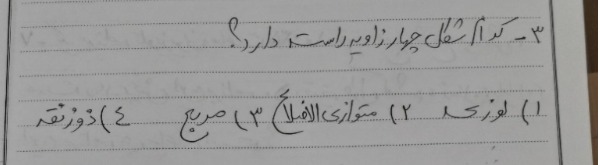 ۳- کدام شکل چهار زاویه راست دارد؟
۱) لوزی ۲) متوازی الاضلاع ۳) مربع ٤) ذوزنقه